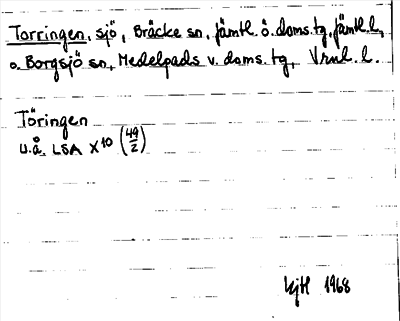 Torringen, sjö, Bräcke sn, Jämtl. ö. doms.tg, Jämtl. l,
o. Borgsjö sn, Medelpads v. doms. tg, Vrnl. l.
Töringen
u.å. LSA X10 (49/2)
1968